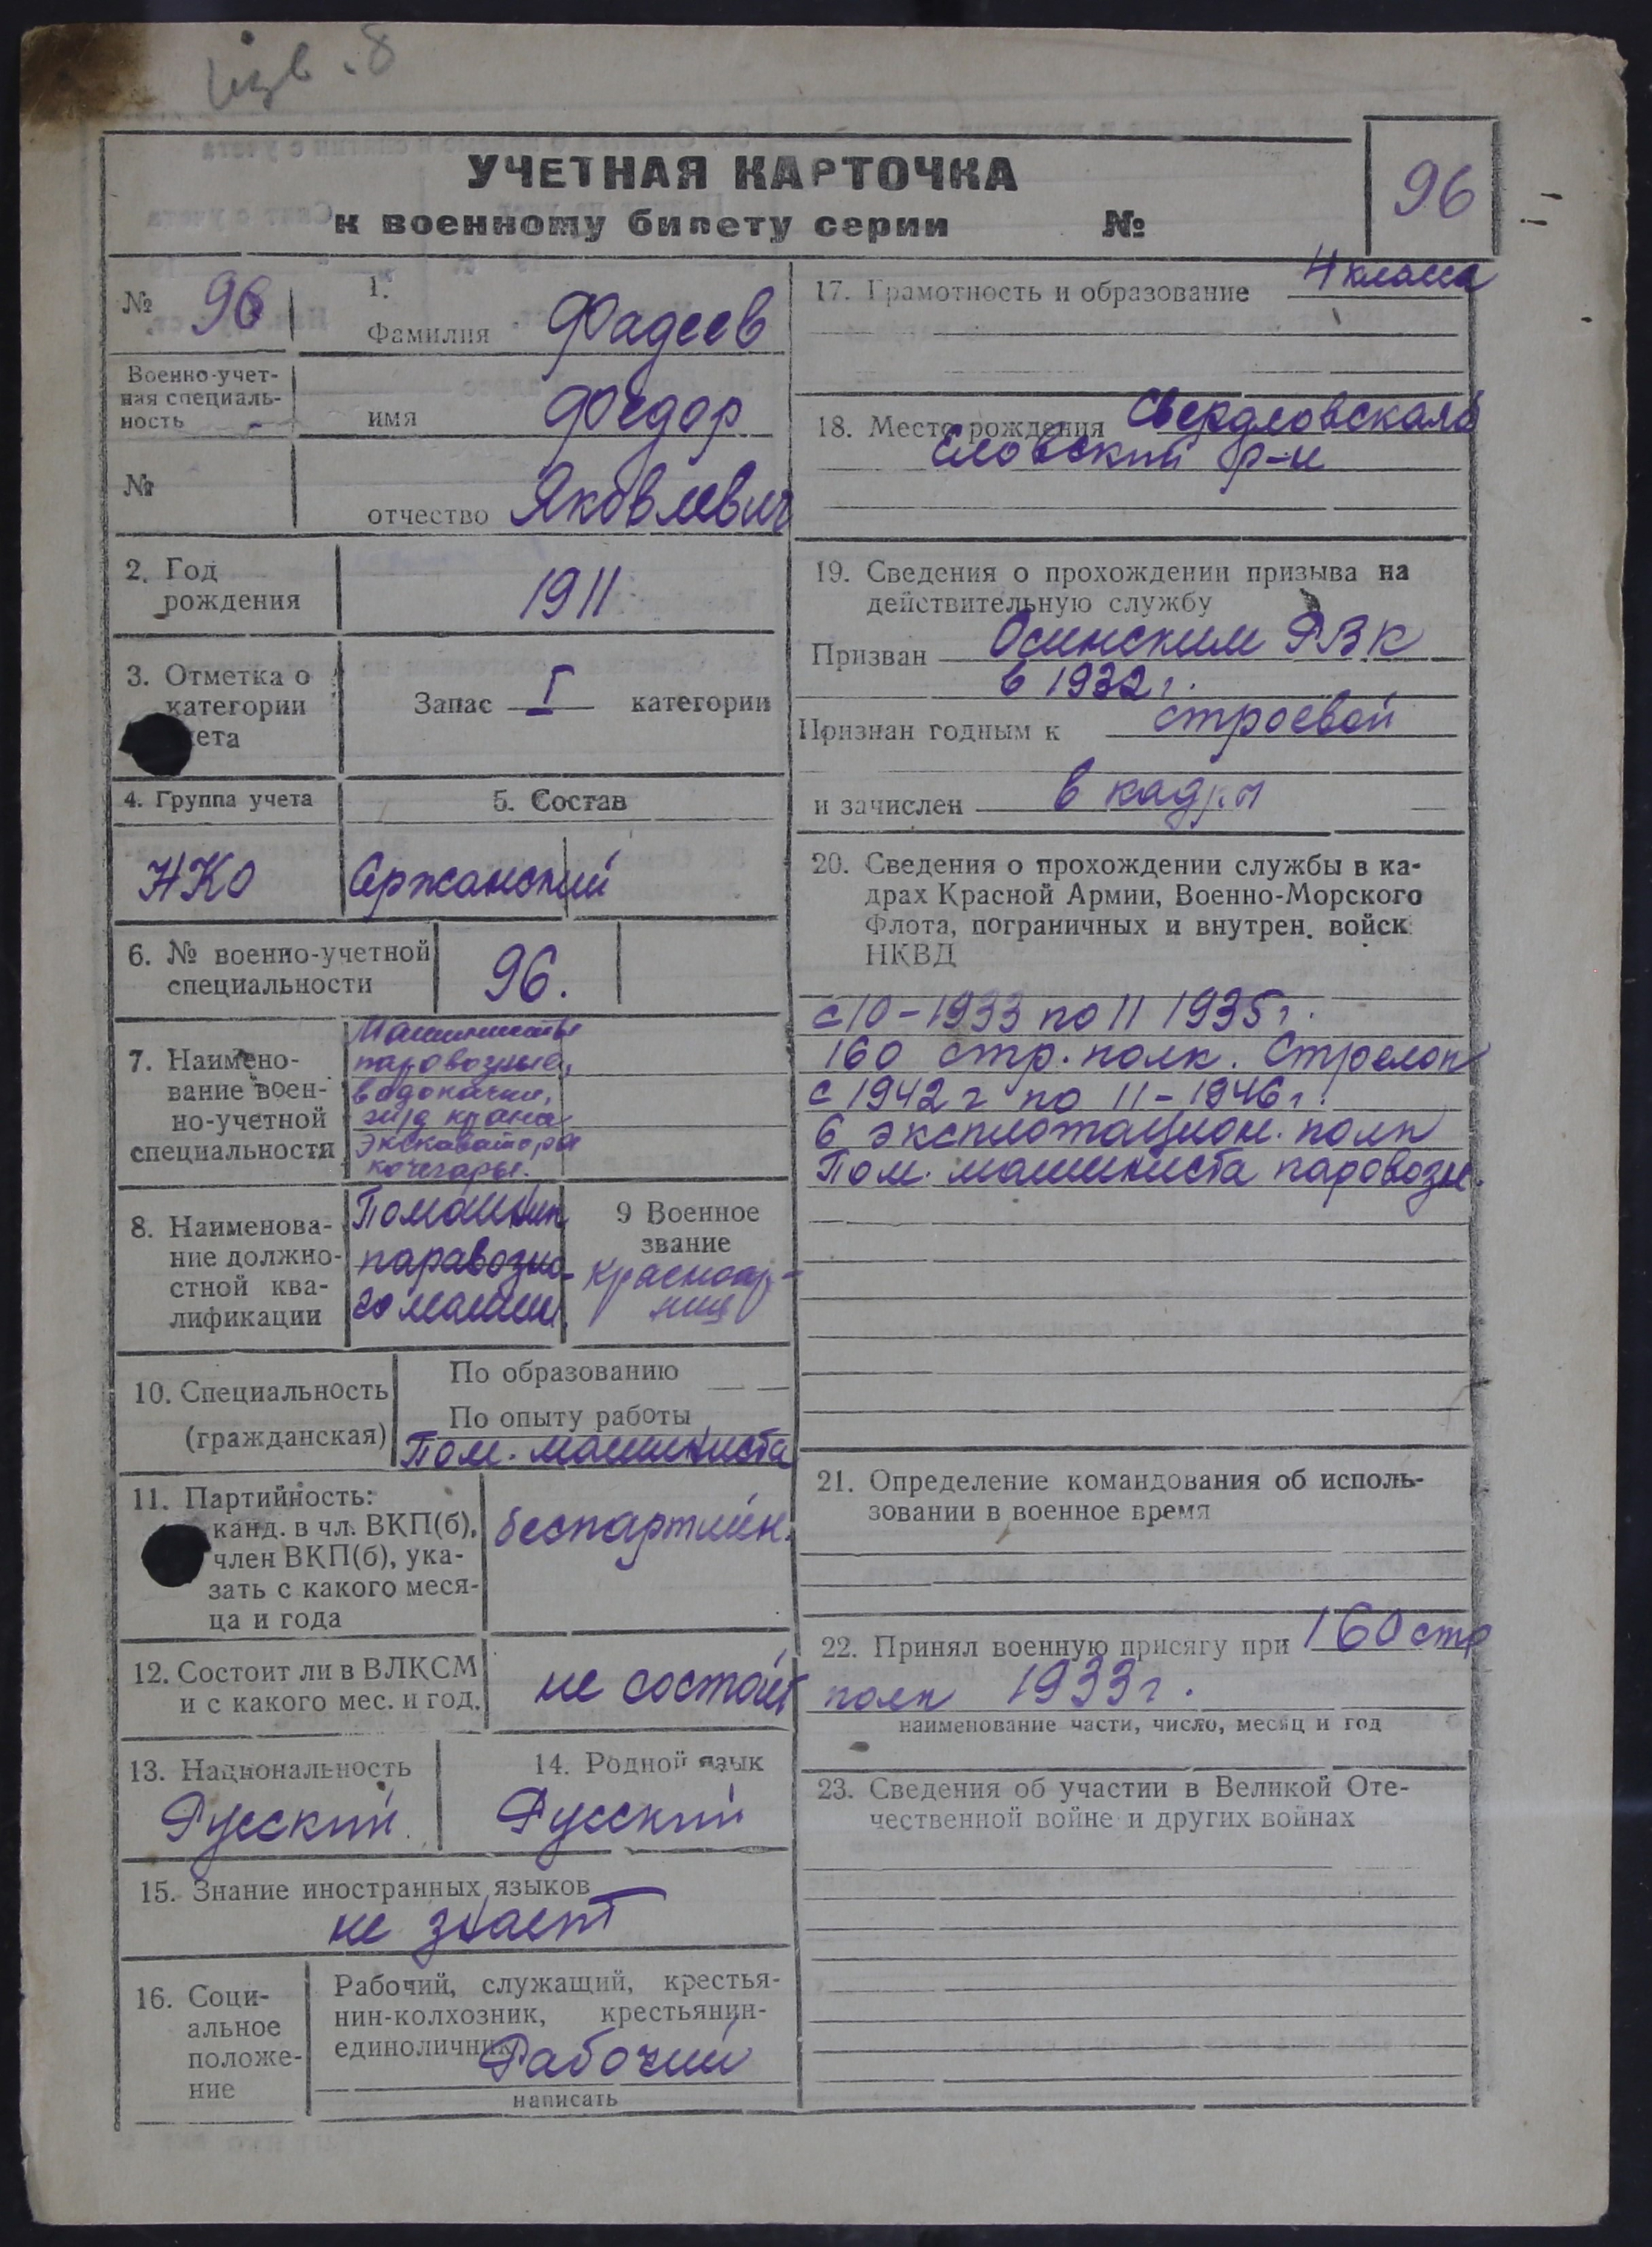 изв. 8
УЧЕТНАЯ КАРТОЧКА
к военному билету серии №
96
№ 96
1.
Фамилия Фадеев
Военно-учет-
ная специаль-
ность
имя Федор
№
отчество Яковлевич
2. Год
рождения
1911
3. Отметка о
категории
ета
Запас I категории
4. Группа учета
5. Состав
НКО
Сржанский
6. № военно-учетной
специальности
96.
7. Наимено-
вание воен-
но-учетной
специальности
Машинисты
паровозные,
водокачки,
гид крана
экскаватора
кочегары.
8. Наименова-
ние должно-
стной ква-
лификации
Помашин
паравозно-
го машин
9 Военное
звание
красноар-
меец
10. Специальность
(гражданская)
По образованию — —
По опыту работы
Пом. машиниста
11. Партийность:
канд. в чл. ВКП(б),
член ВКП(б), ука-
зать с какого меся-
ца и года
беспартийн.
12. Состоит ли в ВЛКСМ
и с какого мес. и год.
не состоит
13. Национальность
Русский
14. Родной язык
Русский
15. Знание иностранных языков
не знает
16. Соци-
альное
положе-
ние
Рабочий, служащий, крестья-
нин-колхозник, крестьянин-
единоличник
Рабочий
написать
17. Грамотность и образование 4 класса
18. Место рождения Свердловская о
Еловский р-н
19. Сведения о прохождении призыва на
действительную службу
Призван Осинским РВК
в 1932 г.
Признан годным к строевой
и зачислен в кадры
20. Сведения о прохождении службы в ка-
драх Красной Армии, Военно-Морского
Флота, пограничных и внутрен. войск
НКВД
с 10-1933 по 11 1935 г.
160 стр. полк. Стрелок
с 1942 г по 11-1946 г.
6 эксплотацион. полк
Пом. машиниста паровозн.
21. Определение командования об исполь-
зовании в военное время
22. Принял военную присягу при 160 стр
полк 1933 г.
наименование части, число, месяц и год
23. Сведения об участии в Великой Оте-
чественной войне и других войнах